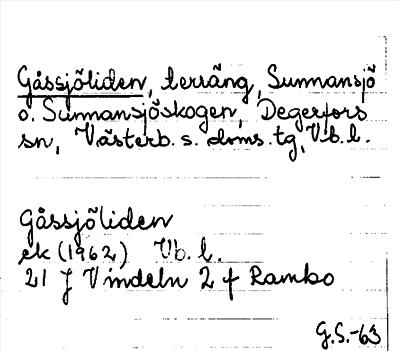 Gåssjöliden, terräng, Sunnansjö
o. Sunnansjöskogen, Degerfors
sn, Västerb. s. doms. tg, Vb. l.
Gåssjöliden
ek (1962) Vb. l.
21 J Vindeln 2 f Rambo
G.S.-63